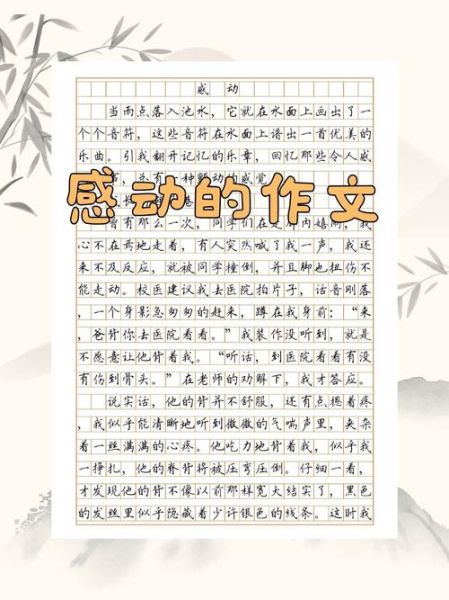 感动
当雨点落入池水，它就在水面上画出了一
个个音符，这些音符在水面上谱出一首优美的
乐曲。引我翻开记忆的乐章，回忆那些令人感
种颤动的感觉
感动的作文
曾有那么一次，同学们在走廊内嬉闹，我
心不在焉地走着，有人突然喊了我一声，我还
来不及反应，就被同学撞倒，并且脚也扭伤不
能走动。校医建议我去医院拍片子，话音刚落
，一个身影急匆匆的赶来，蹲在我身前：“来
，爸背你去医院看看。”我装作没听到，就是
不愿意让他背着我。“听话，到医院看看有没
有伤到骨头。”在老师的劝解下，我才答应。
说实话，他的背并不舒服，还有点摁着疼
，我似乎能清晰地听到微微的气喘声里，夹杂
着一丝满满的心疼。他吃力地背着我，似乎我
一挣扎，他的脊背将被压弯压倒。仔细一看，
才发现他的背不像以前那样宽大结实了，黑色
的发丝里似乎隐藏着少许银色的线条。这时我